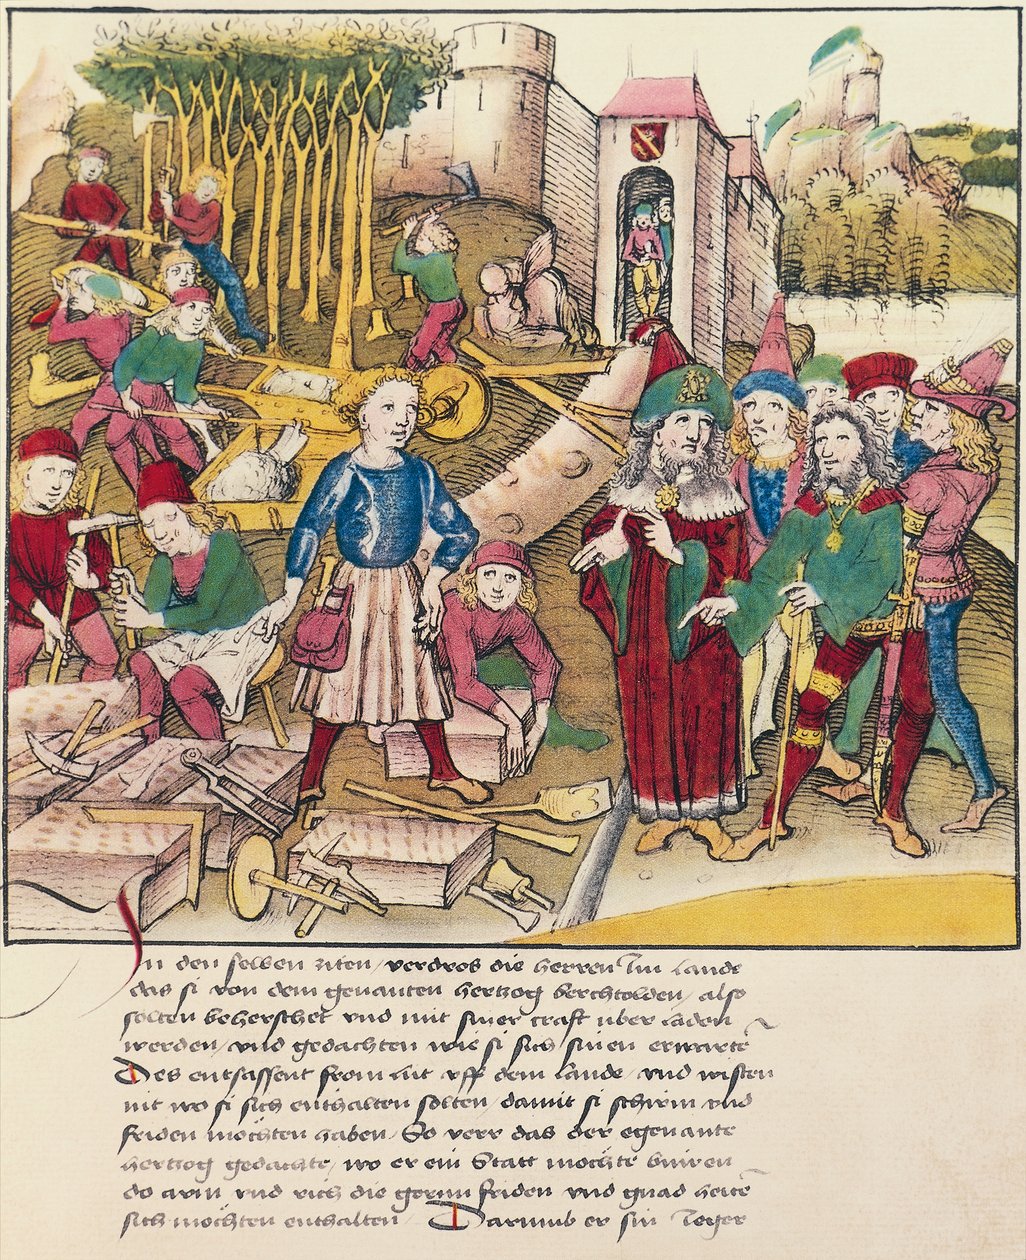 In den selben ziten / verdros die herren Im Lande
das si von dem genanten hertzog berchtolden / also
solten beherschet vnd mit siner craft vber laden
werden / vnd gedachten wie si sich sin en erwerte
Des entsassent from lut vff dem Lande / vnd wisten
nit wo si sich enthalten solten / damit si schirm vnd
friden möchten haben / So verr das der egenante
hertzog gedachte / wo er ein Statt möchte buwen
do arm vnd rich die gernn friden vnd gnad hette
sich möchten enthalten / Darumb er sin Jeger